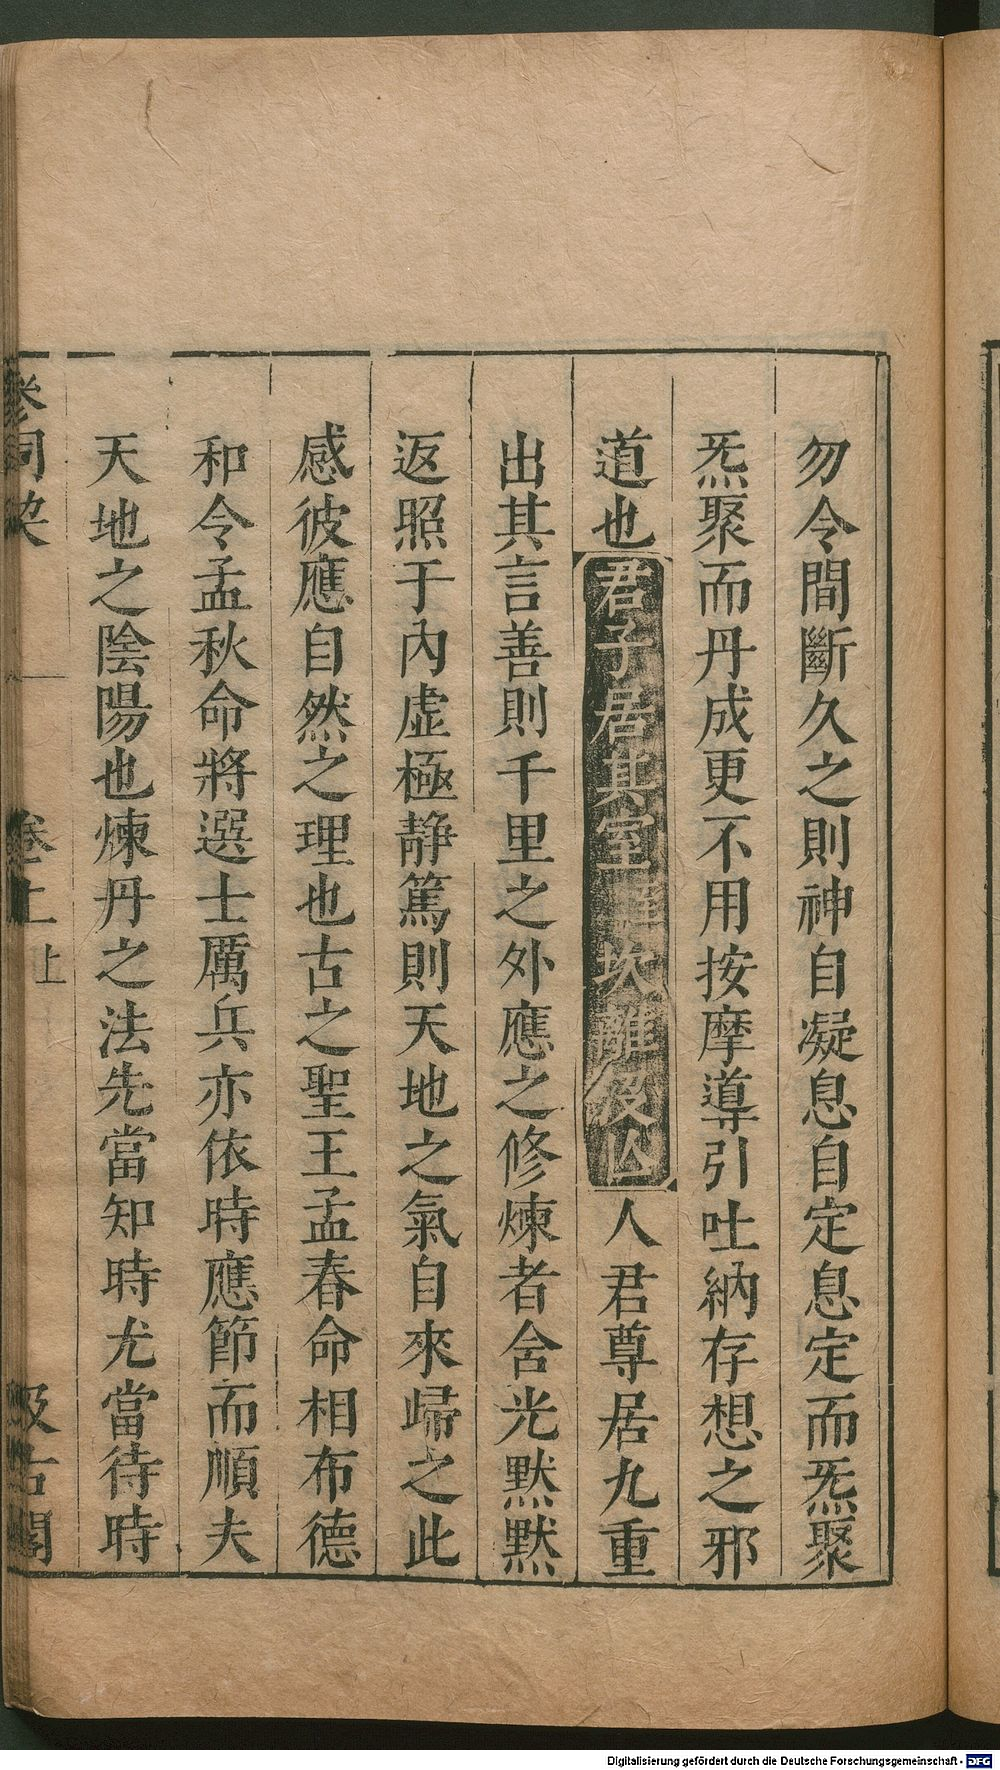 勿令間斷久之則神自凝息自定息定而炁聚
炁聚而丹成更不用按摩導引吐納存想之邪
道也君子居其室至坎離沒亡人君尊居九重
出其言善則千里之外應之修煉者含光默默
返照于內虛極静篤則天地之氣自來歸之此
感彼應自然之理也古之聖王孟春命相布德
和令孟秋命將選士厲兵亦依時應節而順夫
天地之陰陽也煉丹之法先當知時尤當待時
參同契
卷上
上
汲古閣
Digitalisierung gefördert durch die Deutsche Forschungsgemeinschaft - DFG